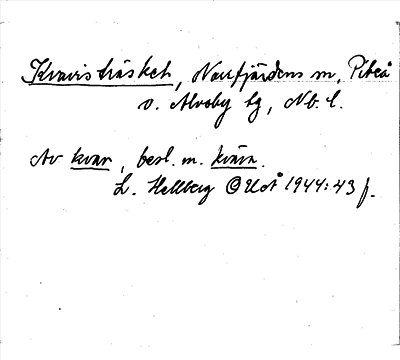 Kvavisträsket, Norrfjärdens sn, Piteå
o. Älvsby tg, Nb. l.
Av kvav, besl. m. kväva.
L. Hellberg OUÅ 1944: 43 f.